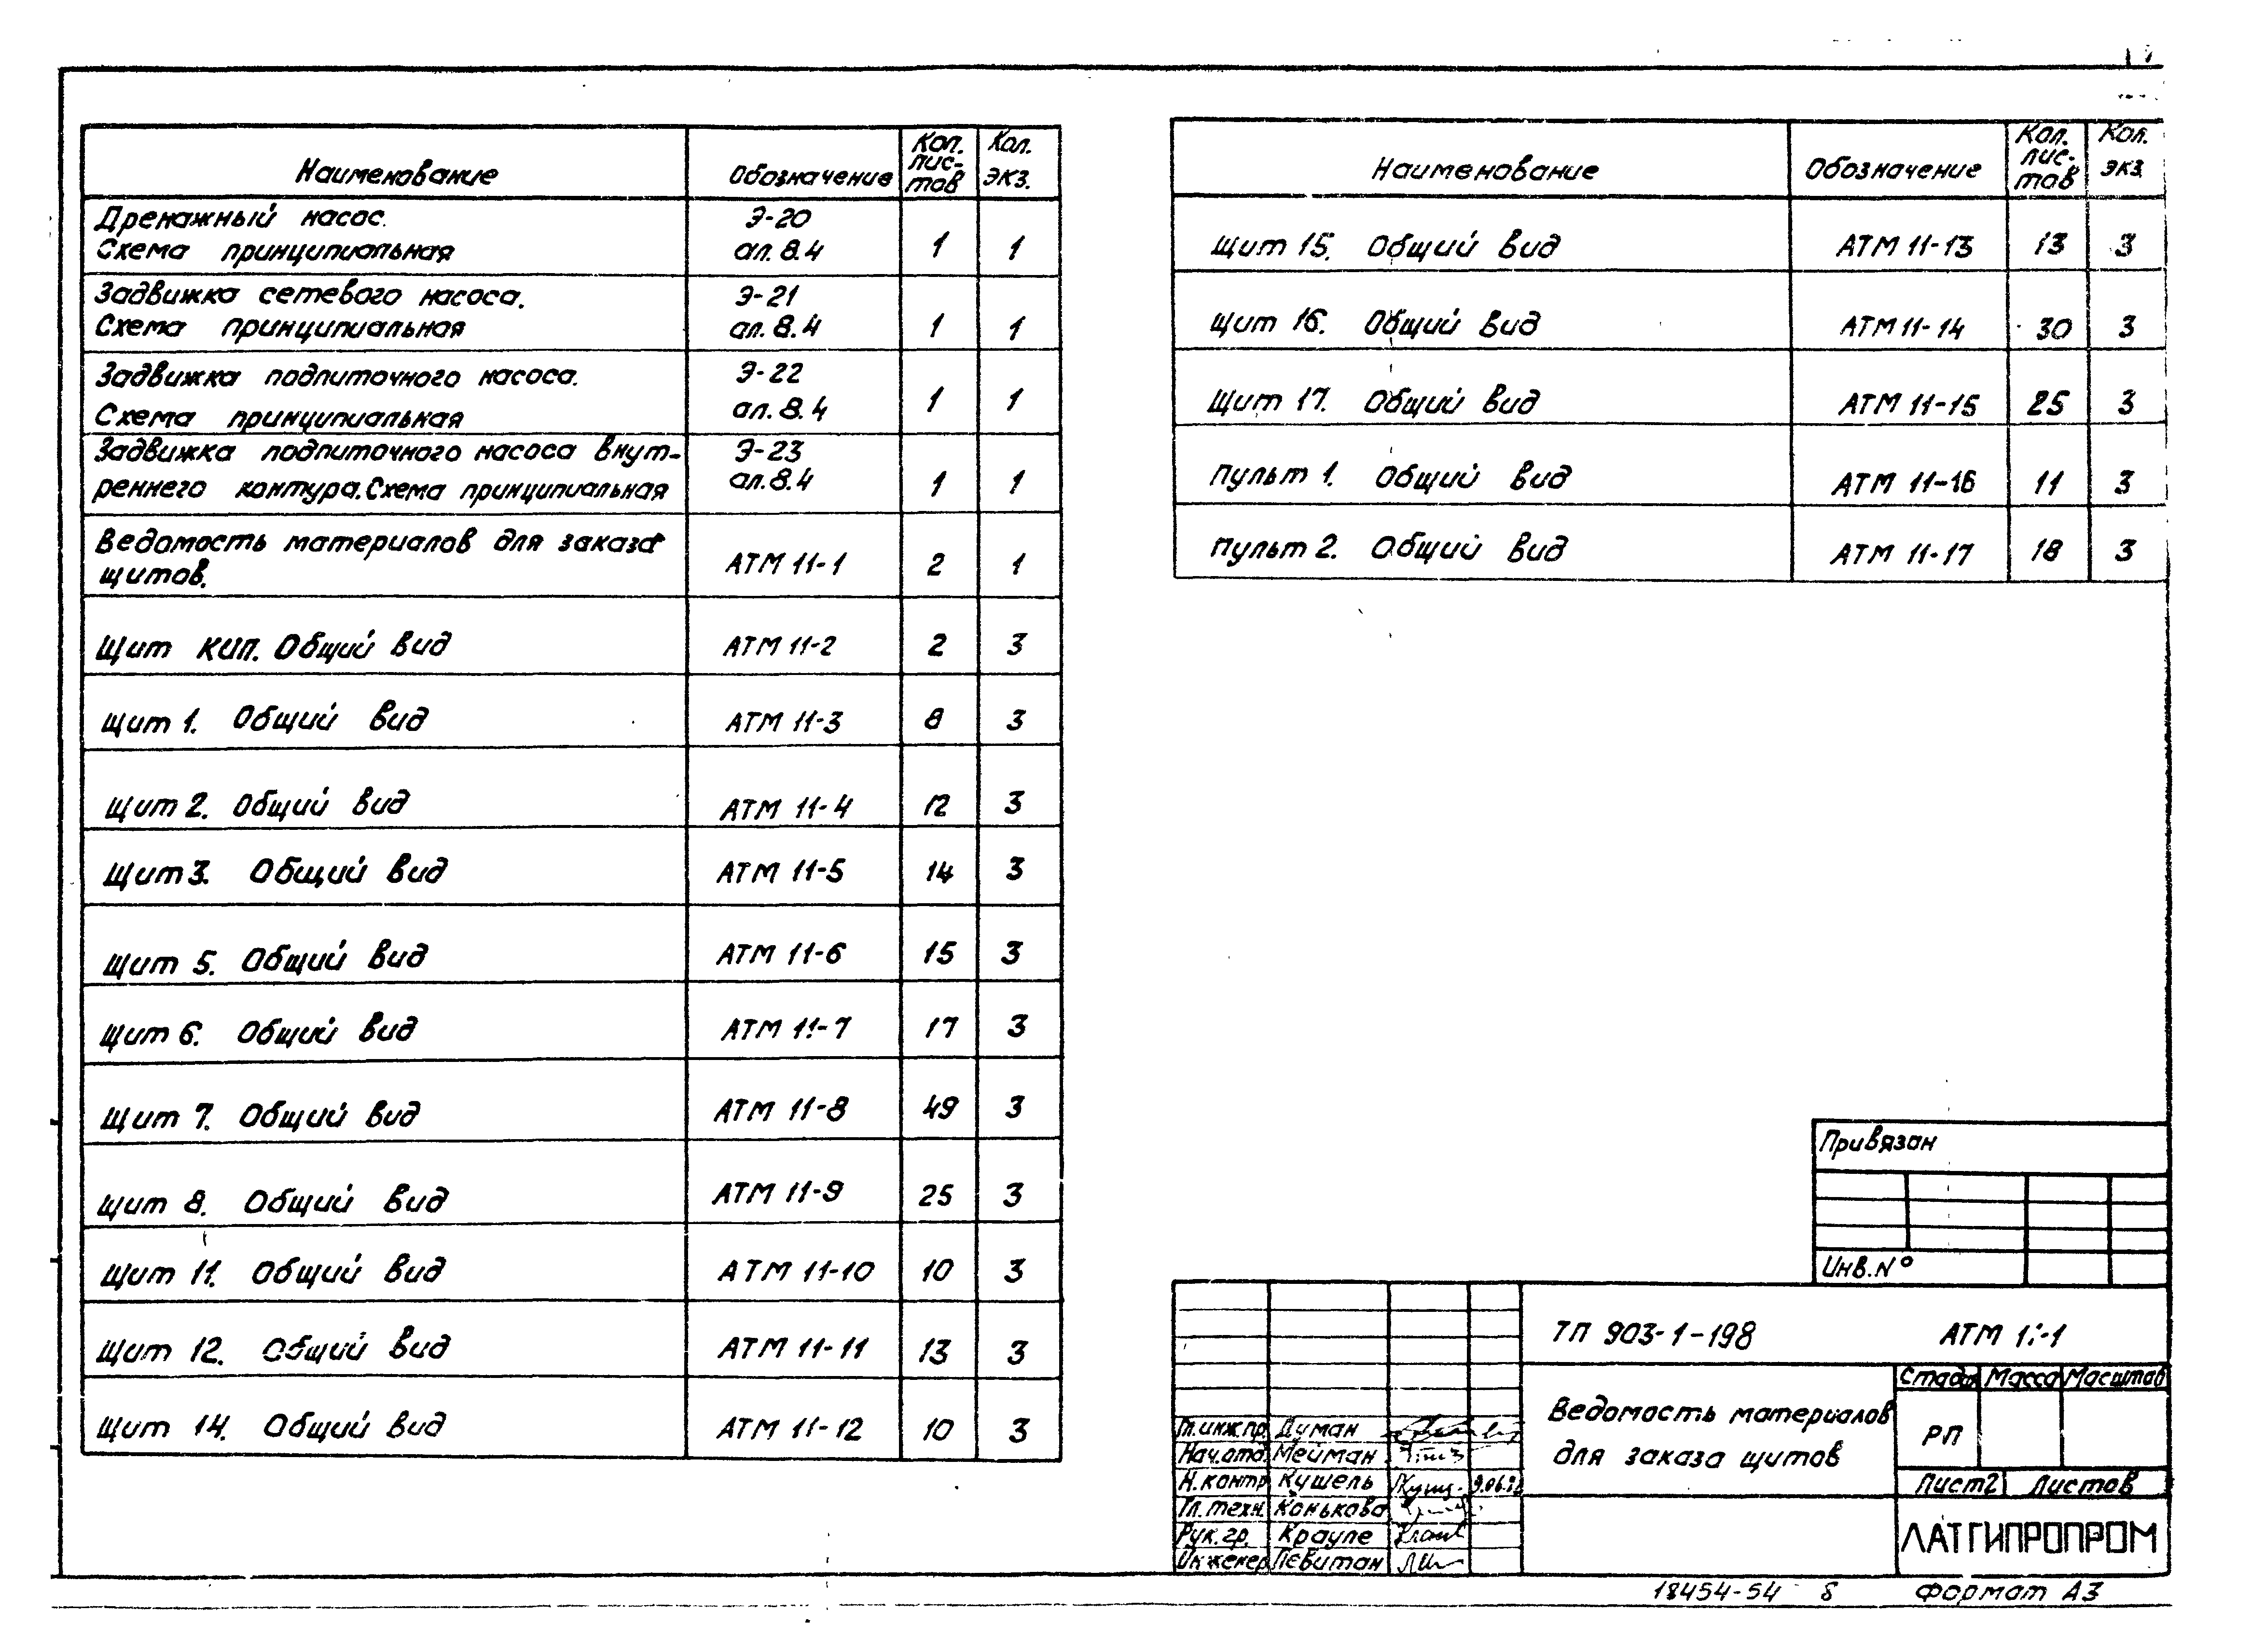 Наименование Обозначение Кол. лис- тов Кол. экз.
Дренажный насос. Э-20
Схема принципиальная ал. 8.4 1 1
Задвижка сетевого насоса. Э-21
Схема принципиальная ал. 8.4 1 1
Задвижка подпиточного насоса. Э-22
Схема принципиальная ал. 8.4 1 1
Задвижка подпиточного насоса внут- Э-23
реннего контура. Схема принципиальная ал. 8.4 1 1
Ведомость материалов для заказа
щитов. АТМ 11-1 2 1
Щит КИП. Общий вид АТМ 11-2 2 3
Щит 1. Общий вид АТМ 11-3 8 3
Щит 2. Общий вид АТМ 11-4 12 3
Щит 3. Общий вид АТМ 11-5 14 3
Щит 5. Общий вид АТМ 11-6 15 3
Щит 6. Общий вид АТМ 11-7 17 3
Щит 7. Общий вид АТМ 11-8 49 3
Щит 8. Общий вид АТМ 11-9 25 3
Щит 11. Общий вид АТМ 11-10 10 3
Щит 12. Общий вид АТМ 11-11 13 3
Щит 14. Общий вид АТМ 11-12 10 3
Наименование Обозначение Кол. лис- тов Кол. экз.
Щит 15. Общий вид АТМ 11-13 13 3
Щит 16. Общий вид АТМ 11-14 30 3
Щит 17. Общий вид АТМ 11-15 25 3
Пульт 1. Общий вид АТМ 11-16 11 3
Пульт 2. Общий вид АТМ 11-17 18 3
Привязан
Инв. N°
ТП 903-1-198 АТМ 11-1
Ведомость материалов
для заказа щитов
Стадия Масса Масштаб
РП
Лист 2 Листов
ЛАТГИПРОПРОМ
Гл. инж. пр. Думан
Нач. отд. Мейман
Н. контр Кушель
Гл. техн. Конькова
Рук. гр. Крауле
Инженер Левитан
18454-54 8 Формат А3